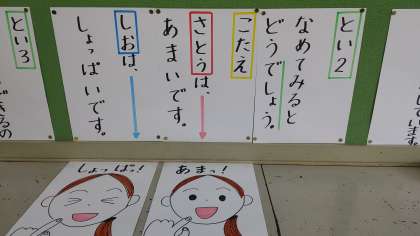 とい2
なめてみると
どうでしょう。
こたえ
さとうは、
あまいです。
しおは、
しょっぱいです。
とい3
できるの
ています。
あまっ!
しょっぱっ!